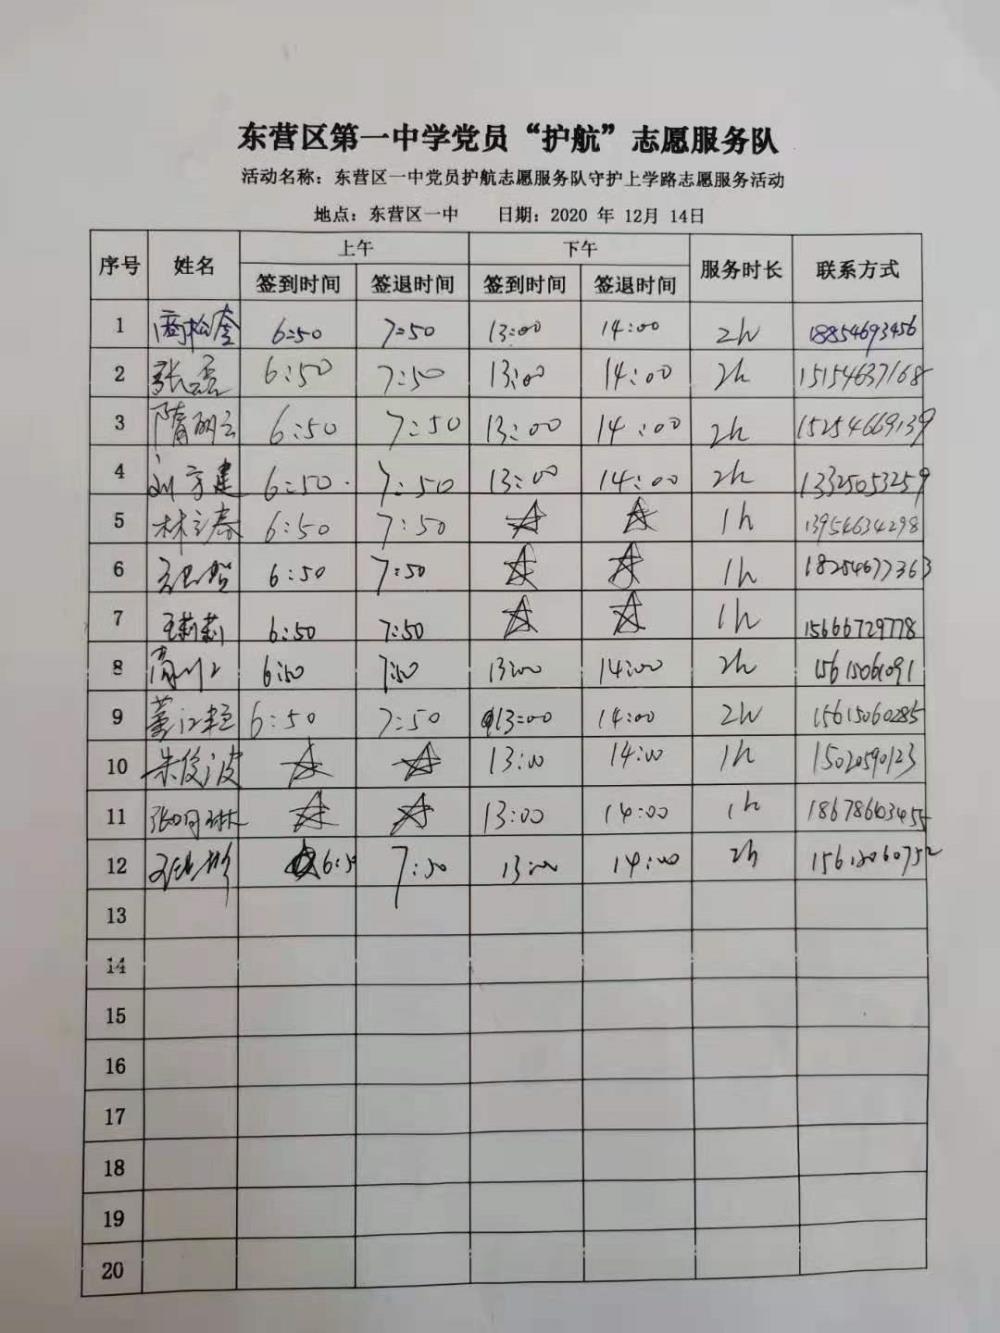 东营区第一中学党员“护航”志愿服务队
活动名称：东营区一中党员护航志愿服务队守护上学路志愿服务活动
地点：东营区一中 日期：2020 年 12月 14日
序号 姓名 上午 下午 服务时长 联系方式
签到时间 签退时间 签到时间 签退时间
1 商松奎 6:50 7:50 13:00 14:00 2h 18854693456
2 张磊 6:50 7:50 13:00 14:00 2h 15154637168
3 隋丽云 6:50 7:50 13:00 14:00 2h 15254669139
4 刘方建 6:50 7:50 13:00 14:00 2h 13325053259
5 林立春 6:50 7:50 1h 13954634298
6 6:50 7:50 1h 18254677363
7 王莉莉 6:50 7:50 1h 15666729778
8 6:50 7:50 13:00 14:00 2h 15615061091
9 董江 6:50 7:50 13:00 14:00 2h 15615060285
10 朱俊波 13:00 14:00 1h 15020590123
11 张明琳 13:00 14:00 1h 18678603455
12 6:50 7:50 13:00 14:00 2h 15615060752
13
14
15
16
17
18
19
20